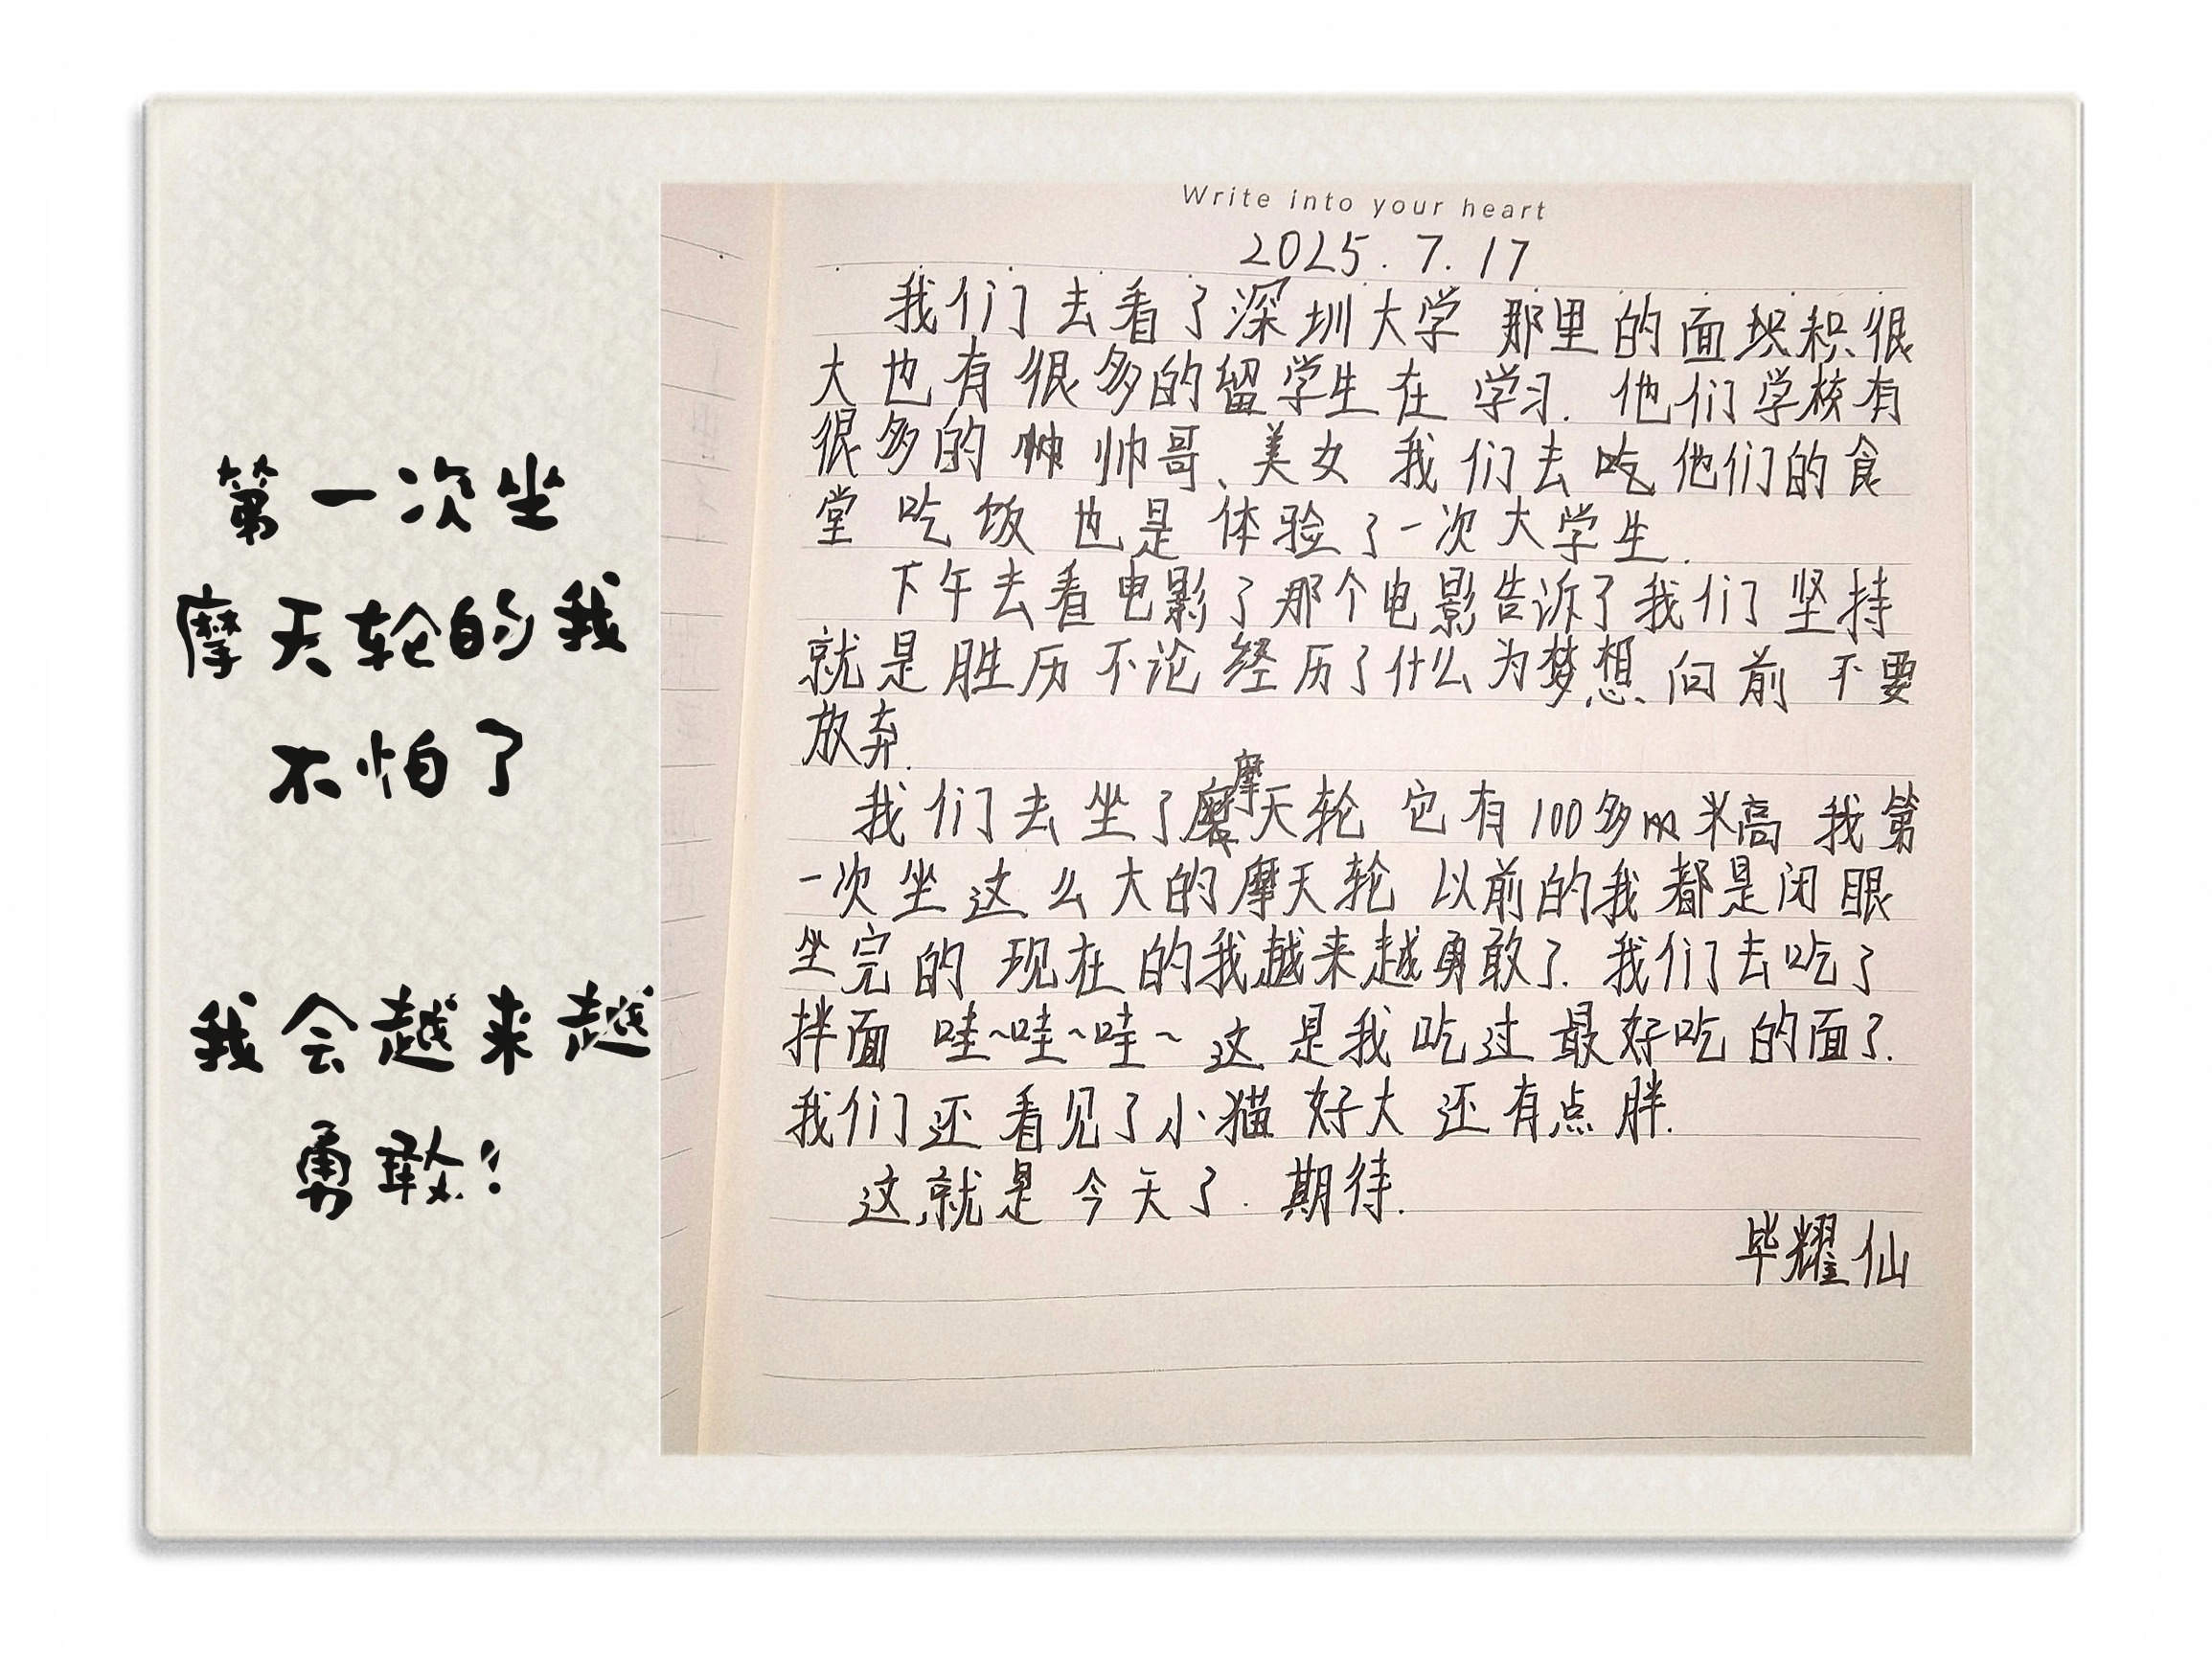 第一次坐
摩天轮的我
不怕了
我会越来越
勇敢!
Write into your heart
2025.7.17
我们去看了深圳大学 那里的面积很
大也有很多的留学生在学习. 他们学校有
很多的帅哥、美女 我们去吃他们的食
堂 吃饭 也是体验了一次大学生.
下午去看电影了那个电影告诉了我们坚持
就是胜历不论经历了什么为梦想、向前 不要
放弃.
我们去坐了摩天轮 它有100多米高 我第
一次坐这么大的摩天轮 以前的我都是闭眼
坐完的 现在的我越来越勇敢了. 我们去吃了
拌面 哇~哇~哇~ 这是我吃过最好吃的面了.
我们还看见了小猫 好大 还有点胖.
这就是今天了. 期待.
毕耀仙